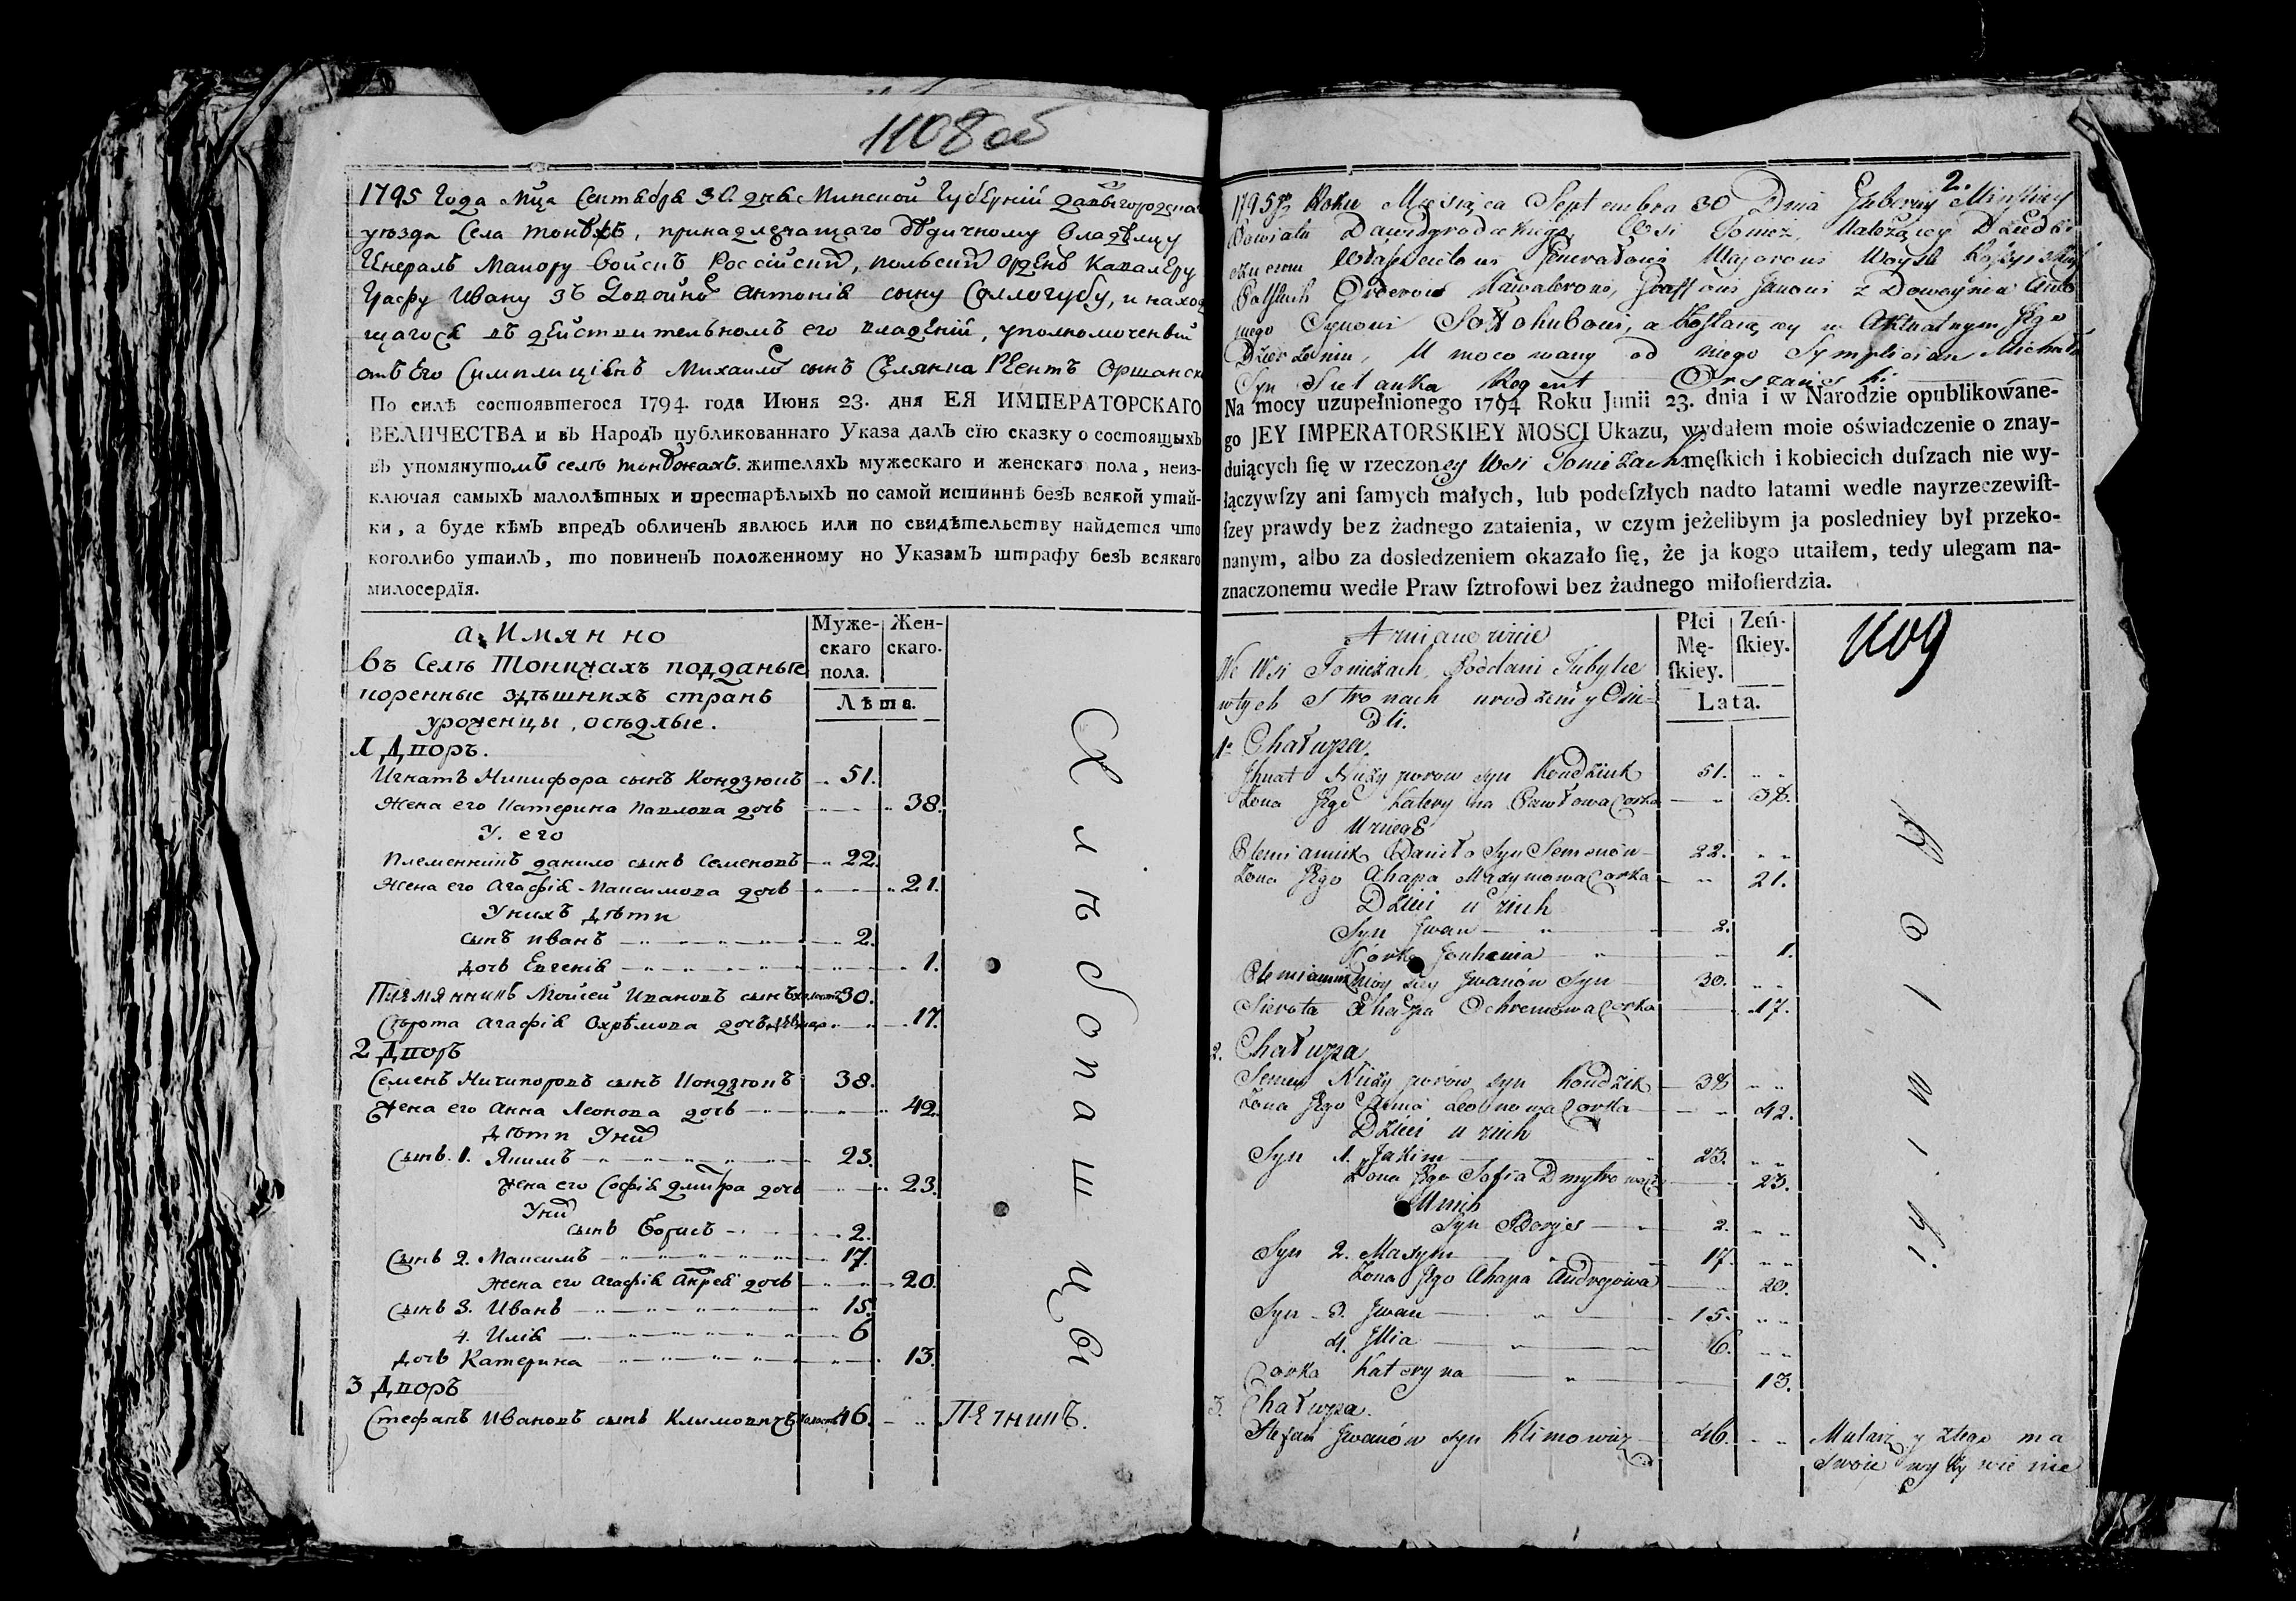 1108 об
1795 Года мца Сентября 30. дня Минской Губерній Давыгородска
уѣзда Села Тонѣжѣ, принадлежащаго дѣдичному Владѣлцу
Генералъ Маиору Войскъ Россійски, польски Орденъ Кавалеру
Графу Ивану зъ Довойно Антонія сыну Соллогубу, и наход
щагося въ дѣйствительномъ его владѣній, уполномоченный
отъ Его Симплицівнъ Михаила сынъ Селянка Реентъ Оршанск
По силѣ состоявшегося 1794. года Июня 23. дня ЕЯ ИМПЕРАТОРСКАГО
ВЕЛИЧЕСТВА и въ Народѣ публикованнаго Указа далъ сїю сказку о состоящыхъ
въ упомянутомъ селѣ Тонѣжахъ. жителяхъ мужескаго и женскаго пола, неиз-
ключая самыхъ малолѣтныхъ и престарѣлыхъ по самой истиннѣ безъ всякой утай-
ки, а буде кѣмъ впредь обличенъ явлюсь или по свидѣтельству найдется что
коголибо утаилъ, то повиненъ положенному по Указамъ штрафу безъ всякаго
милосердїя.
а Имянно
Въ Селѣ Тонижахъ подданые
коренные здѣшнихъ странъ
уроженцы, осѣдлые.
Муже-
скаго
пола.
Жен-
скаго.
Лѣта.
1 Дворъ.
Игнатъ Никифора сынъ Кондзюкъ 51.
Жена его Катерина Павлова дочь 38.
У его
племенникъ данило сынъ Семеновъ 22.
Жена его Агафія Максимова дочь 21.
У нихъ дѣти
сынъ Иванъ 2.
дочь Евгенія 1.
Племянникъ Мойсей Ивановъ сынъ холостъ 30.
Сѣрота Агафія Охрѣмова дочь 17.
2 Дворъ
Семенъ Ничипоровъ сынъ Кондзюкъ 38.
Жена его Анна Леонова дочь 42.
дѣти У ни
Сынъ. 1. Якимъ 23.
Жена его Софія дмитра дочь 23.
У ни
сынъ Борисъ 2.
Сынъ 2. Максимъ 17.
Жена его Агафія Андрея дочь 20.
Сынъ 3. Иванъ 15.
4. Илія 6
дочь Катерина 13.
3 Дворъ
Стефанъ Ивановъ сынъ Климовичъ холостъ 46. Печникъ.
Хлѣбопашцы
2.
1795go Roku Miesiąca Septembra 30 Dnia Gubernij Minskiey
Powiatu Dawidgrodzkiego, Wsi Tonież, Należącey Dziedzi
cznemu Właścicielowi Generałowi Majorowi Woysk Rossyiskich
Polskich Orderow Kawalerowi, Graffowi Janowi z Dowoynow Anto
niego Synowi Sołłohubowi, a zostaiącey w Aktualnym Jego
Dzierżeniu, Umocowany od niego Symplician Michała
Syn Sielanka Regent Orszanski
Na mocy uzupełnionego 1794 Roku Junii 23. dnia i w Narodzie opublikowane-
go JEY IMPERATORSKIEY MOSCI Ukazu, wydałem moie oświadczenie o znay-
duiących ſię w rzeczoney Wsi Toniezach męſkich i kobiecich duſzach nie wy-
łączywſzy ani ſamych małych, lub podeſzłych nadto latami wedle nayrzeczewiſt-
ſzey prawdy bez żadnego zataienia, w czym jeżelibym ja posledniey był przeko-
nanym, albo za dosledzeniem okazało ſię, że ja kogo utaiłem, tedy ulegam na-
znaczonemu wedle Praw ſztrofowi bez żadnego miłoſierdzia.
A mianowicie
We Wsi Toniezach, Poddani Tubylce
w tych Stronach urodzeni y Osie-
dli.
Płci
Mę-
ſkiey.
Zeń-
ſkiey.
Lata.
1109
1. Chałupa.
Jhnat Niczyporow syn Kondziuk 51.
Zona Jego Kateryna Pawłowa Corka 38.
U niego
Plemiannik Daniło Syn Semenów 22.
Zona Jego Ahapa Maxymowa Corka 21.
Dzieci u nich
Syn Jwan 2.
Córka Jouhenia 1.
Plemiannik Moysiey Jwanów Syn 30.
Sierota Ahapa Ochremowa Corka 17.
2. Chałupa
Semen Niczyporów syn Kondzik 38
Zona Jego Anna Leonowa Corka 42.
Dzieci u nich
Syn 1. Jakim 23.
Zona Jego Sofia Dmytrowa 23.
U nich
Syn Borys 2.
Syn 2. Maxym 17.
Zona Jego Ahapa Andrejowa 20.
Syn 3. Jwan 15.
4. Jllia 6.
Corka Kateryna 13.
3. Chałupa.
Stefan Jwanów syn Klimowicz 46. Mularz y z tego ma
swoie wyżywienie
Rolniki.